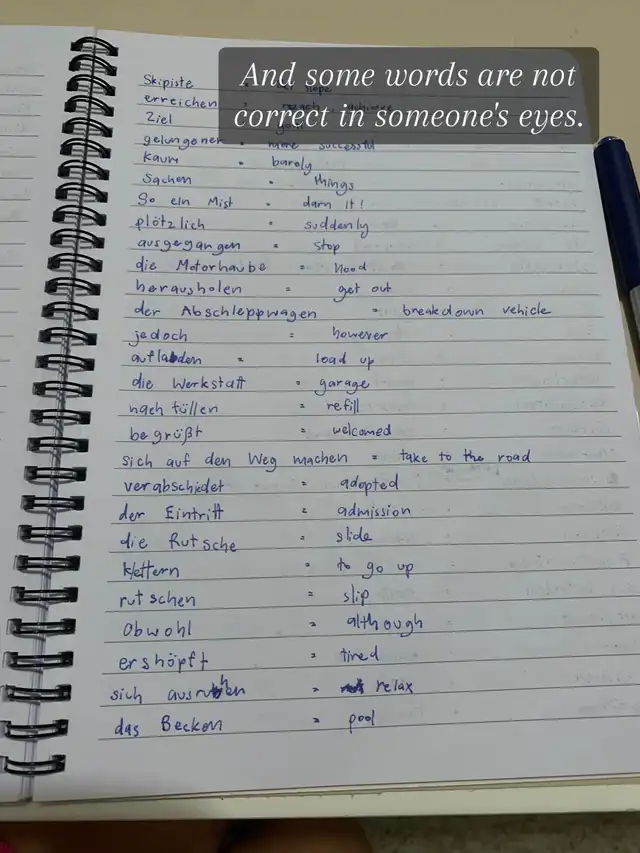 And some words are not
correct in someone's eyes.
Skipiste
erreichen
Ziel
gelungener successful
kaum = barely
Sachen = things
So ein Mist = darn it!
plötzlich = suddenly
ausgegangen = stop
die Motorhaube = hood
herausholen = get out
der Abschleppwagen = breakdown vehicle
jedoch = however
aufladen = load up
die Werkstatt = garage
nach füllen = refill
begrüßt = welcomed
sich auf den Weg machen = take to the road
verabschiedet = adopted
der Eintritt = admission
die Rutsche = slide
klettern = to go up
rutschen = slip
Obwohl = although
ershöpft = tired
sich ausruhen = relax
das Becken = pool